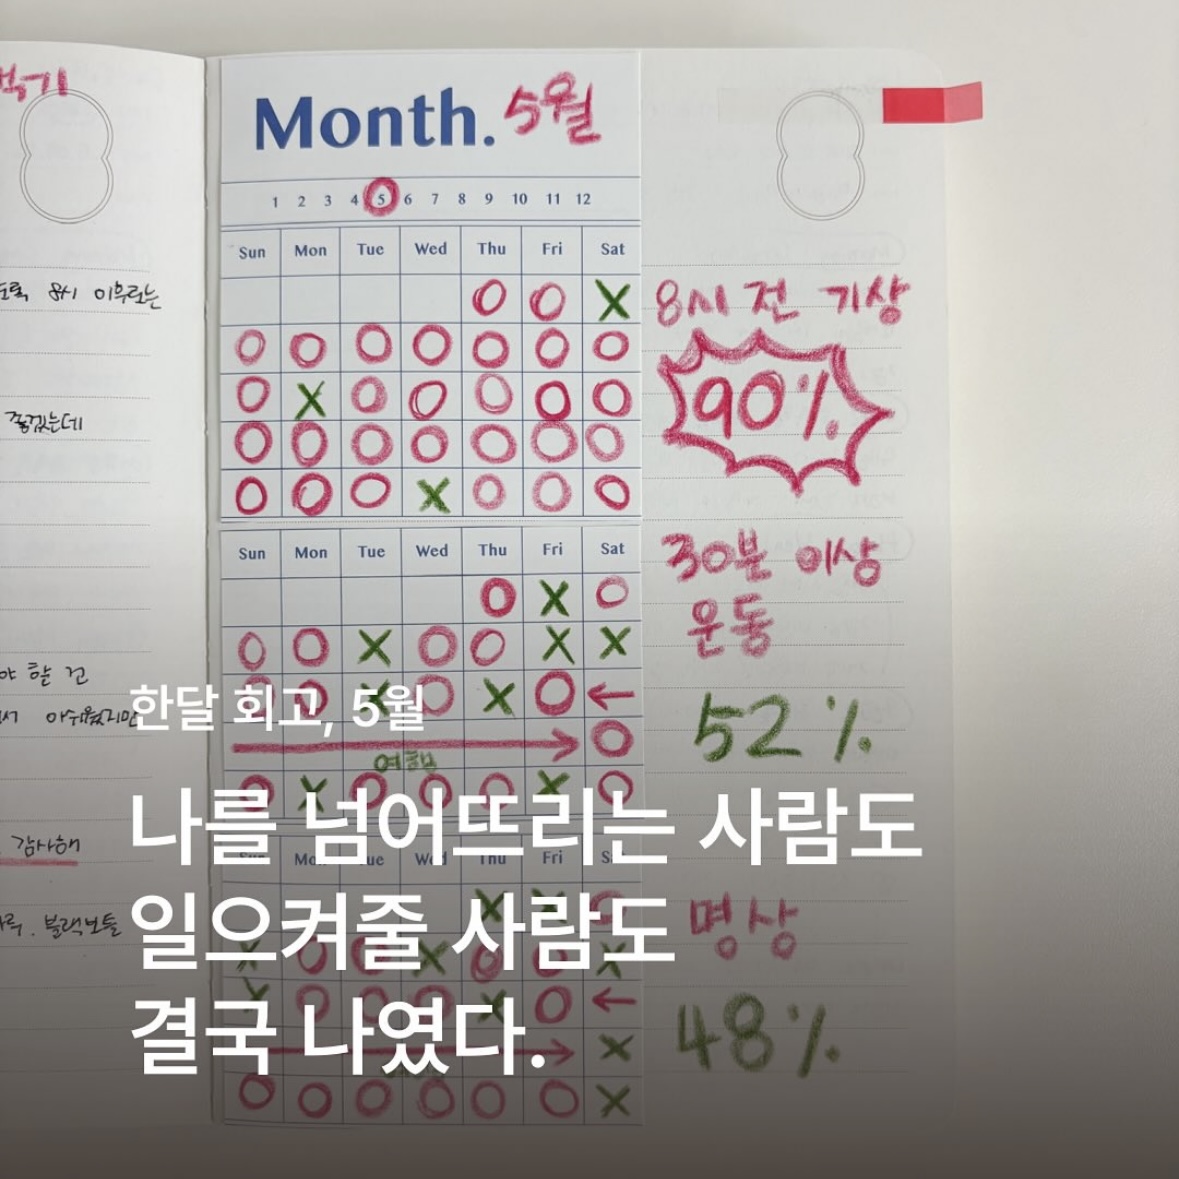 Month. 5월
1 2 3 4 5 6 7 8 9 10 11 12
Sun Mon Tue Wed Thu Fri Sat
O O X
O O O O O O O
O X O O O O O
O O O O O O O
O O O X O O O
8시 전 기상
90%
Sun Mon Tue Wed Thu Fri Sat
O X O
O O X O O X X
여행
30분 이상
운동
52%
Sun Mon Tue Wed Thu Fri Sat
명상
48%
8시 이후로는
좋겠는데
할 건
아쉬웠지만
감사해
블랙보틀
한달 회고, 5월
나를 넘어뜨리는 사람도
일으켜줄 사람도
결국 나였다.